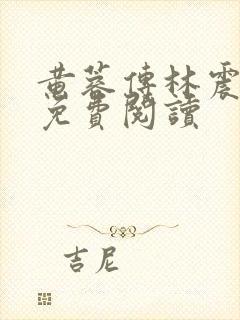 黃蓉傳林震
免費閱讀
吉尼